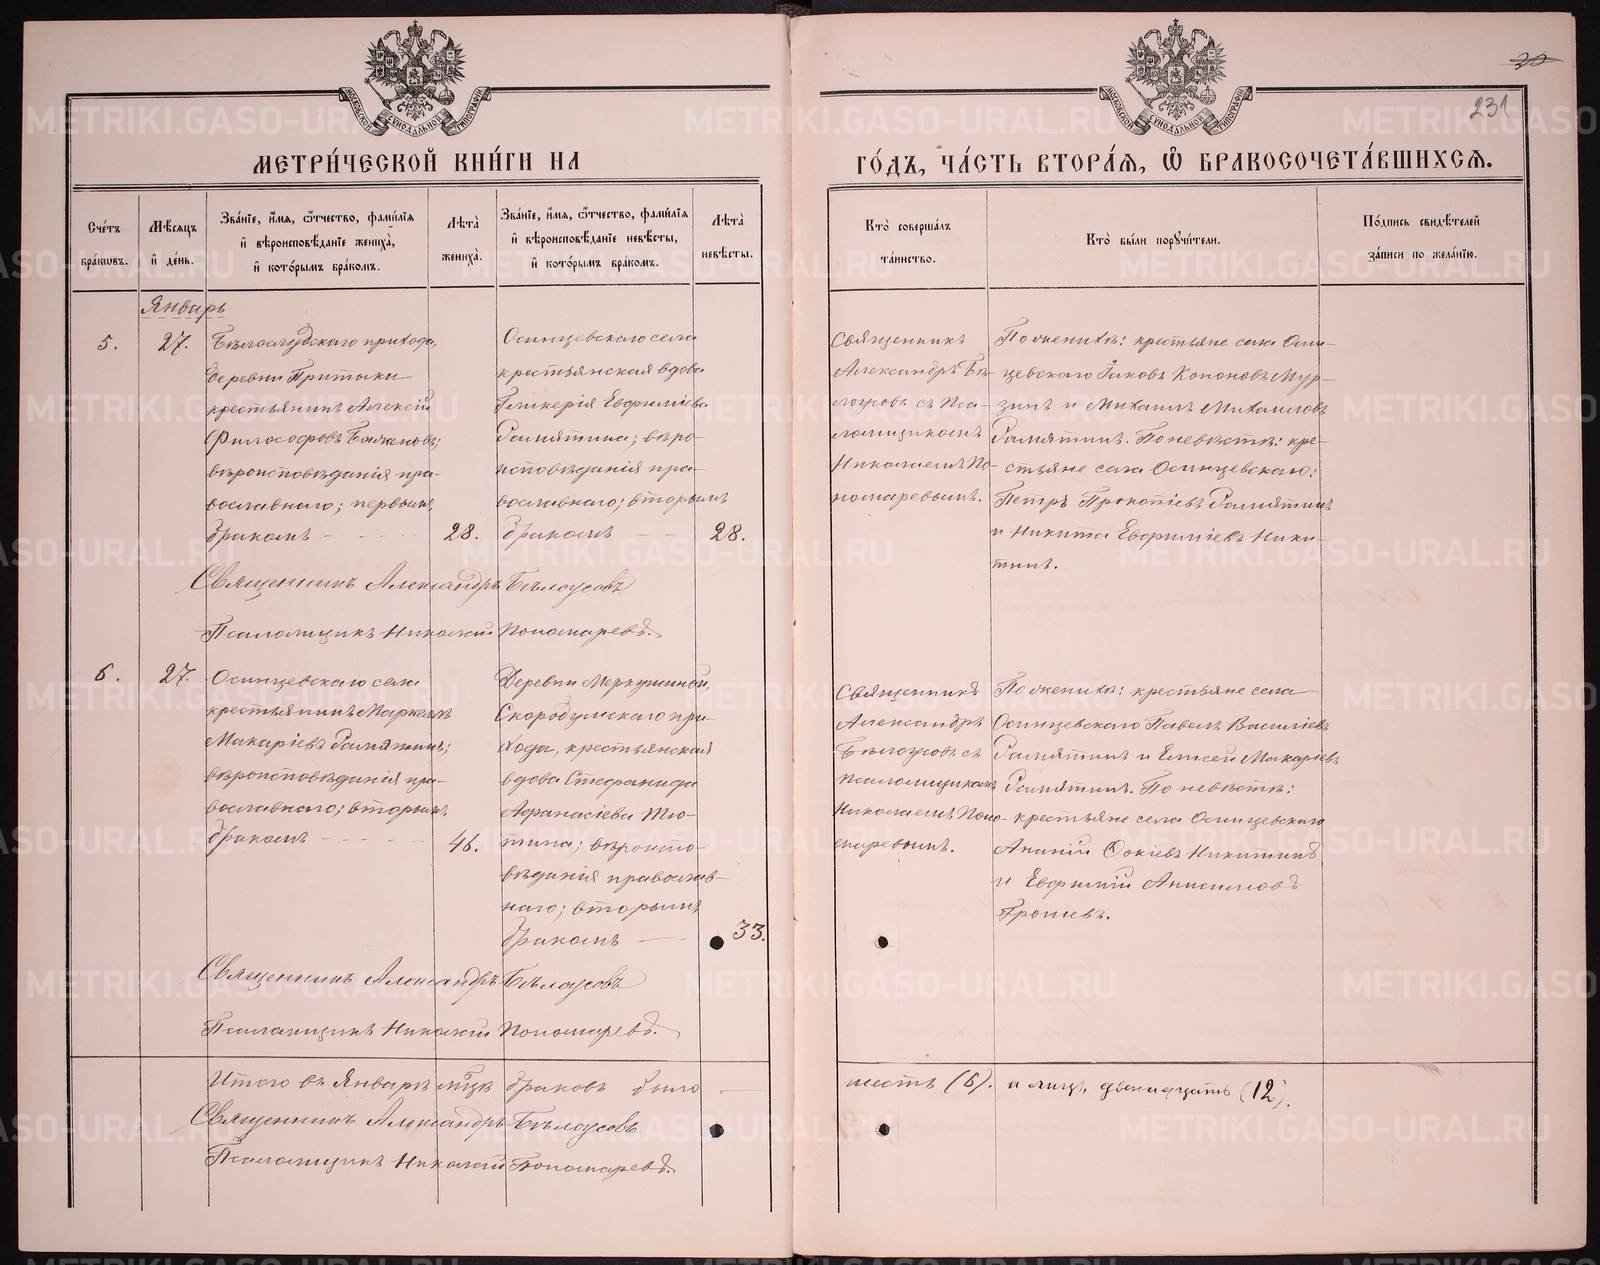 30
231
МОСКОВСКОЙ СѴНОДАЛЬНОЙ ТИПОГРАФІИ
МОСКОВСКОЙ СѴНОДАЛЬНОЙ ТИПОГРАФІИ
МЕТРИ́ЧЕСКОЙ КНИ́ГИ НА
ГО́ДЪ, ЧА́СТЬ ВТОРА́Я, Ѿ БРАКОСОЧЕТА́ВШИХСЯ.
Сче́тъ бра́кѡвъ.
Мѣ́сяцъ и҆ де́нь.
Зва́нїе, и҆́мя, ѻ҆́тчество, фами́лїя
и҆ вѣроисповѣ́данїе жениха̀,
и҆ кото́рымъ бра́комъ.
Лѣ́та жениха̀.
Зва́нїе, и҆́мя, ѻ҆́тчество, фами́лїя
и҆ вѣроисповѣ́данїе невѣ́сты,
и҆ кото́рымъ бра́комъ.
Лѣ́та невѣ́сты.
Кто̀ соверша́лъ
та́инство.
Кто̀ бы́ли порꙋчи́тели.
По́дпись свидѣ́телей
за́писи по жела́нїю.
Январь
5.
27.
Бѣлослудскаго прихода,
деревни Притыки
крестьянинъ Алексій
Философовъ Баженовъ;
вѣроисповѣданія пра-
вославнаго; первымъ
бракомъ
28.
Осинцевскаго села
крестьянская вдова
Гликерія Евфиміева
Замятина; вѣро-
исповѣданія пра-
вославнаго; вторымъ
бракомъ
28.
Священникъ
Александръ Бѣ-
лоусовъ съ Пса-
ломщикомъ
Николаемъ По-
номаревымъ.
По женихѣ: крестьяне села Осин-
цевскаго Іаковъ Кононовъ Мур-
зинъ и Михаилъ Михаиловъ
Замятинъ. По невѣстѣ: кре-
стьяне села Осинцевскаго:
Петръ Прокопіевъ Замятинъ
и Никита Евфиміевъ Ники-
тинъ.
Священникъ Александръ Бѣлоусовъ
Псаломщикъ Николай Пономаревъ.
6.
27.
Осинцевскаго села
крестьянинъ Маркеллъ
Макаріевъ Замятинъ;
вѣроисповѣданія пра-
вославнаго; вторымъ
бракомъ
46.
Деревни Меркушиной,
Скородумскаго при-
хода, крестьянская
вдова Стефанида
Афанасіева Тю-
тина; вѣроиспо-
вѣданія православ-
наго; вторымъ
бракомъ
33.
Священникъ
Александръ
Бѣлоусовъ съ
Псаломщикомъ
Николаемъ Поно-
маревымъ.
По женихѣ: крестьяне села
Осинцевскаго Павелъ Василіевъ
Замятинъ и Елисей Макаріевъ
Замятинъ. По невѣстѣ:
крестьяне села Осинцевскаго
Ананій Фокіевъ Никитинъ
и Евфимій Анисимовъ
Грошевъ.
Священникъ Александръ Бѣлоусовъ
Псаломщикъ Николай Пономаревъ.
Итого въ Январѣ мцѣ браковъ было
шесть (6). а лицъ двенадцать (12).
Священникъ Александръ Бѣлоусовъ
Псаломщикъ Николай Пономаревъ.
METRIKI.GASO-URAL.RU